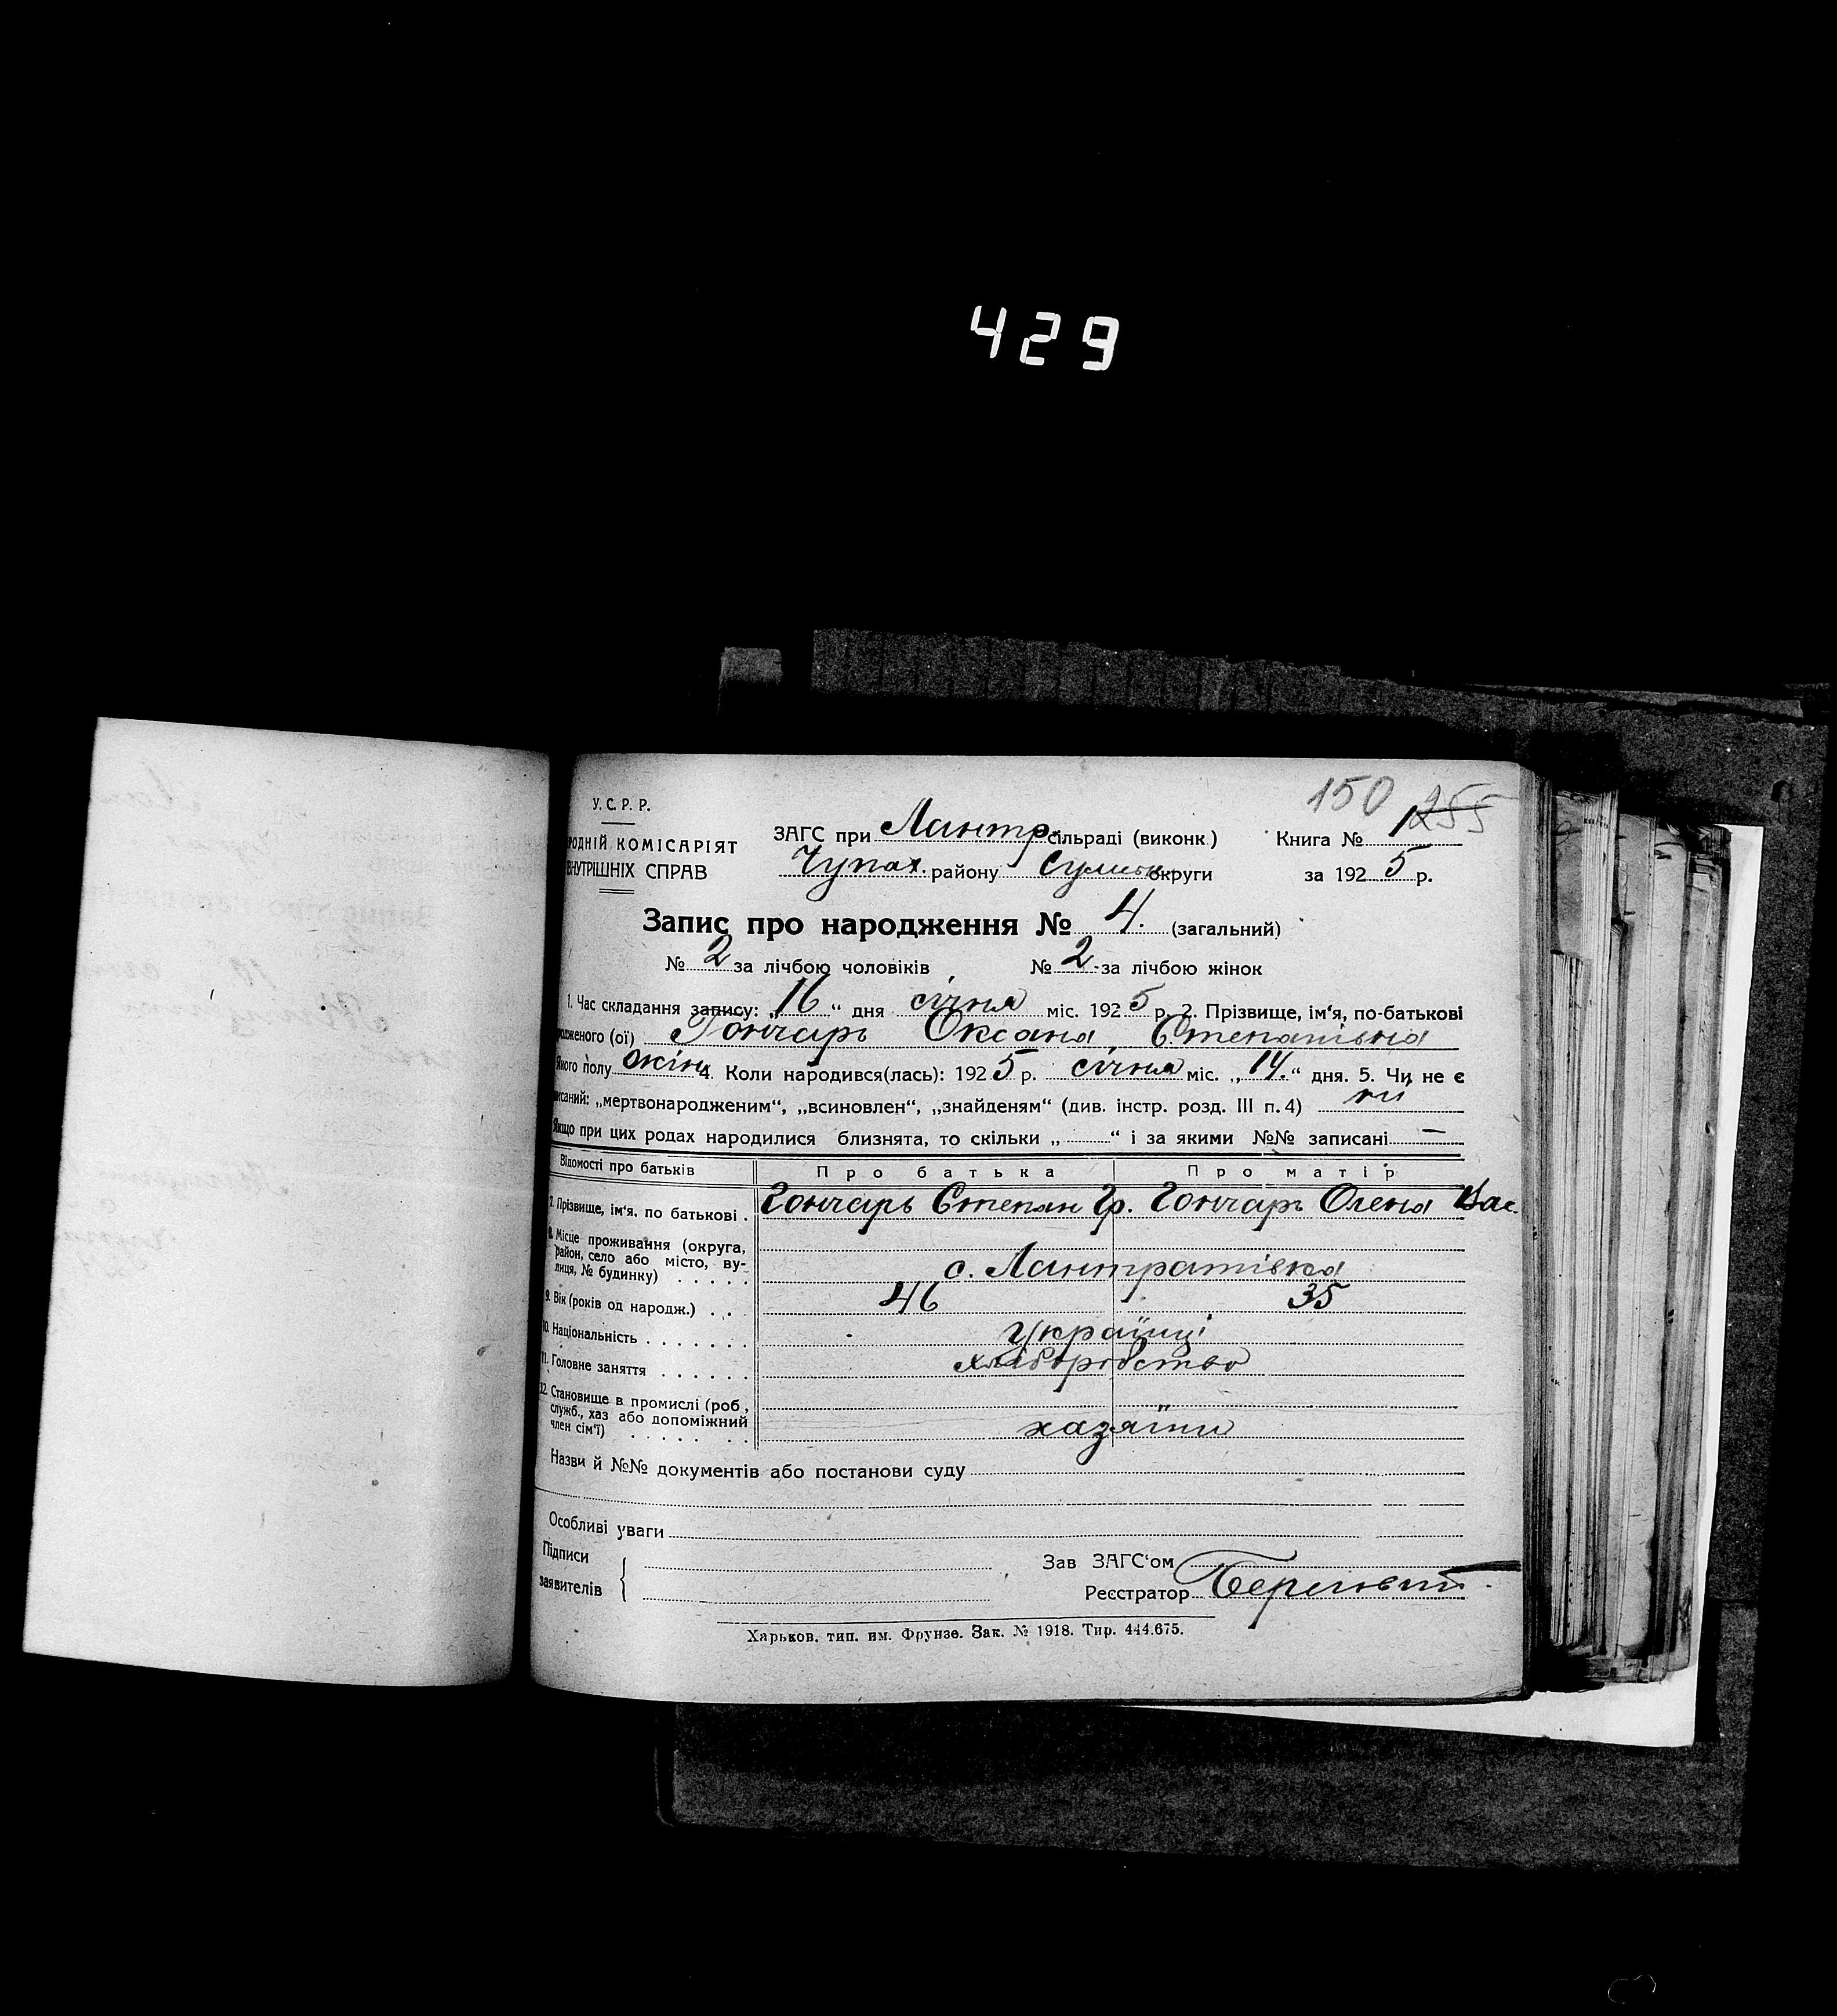 429
150 255
У. С. Р. Р.
РОДНІЙ КОМІСАРІЯТ
ВНУТРІШНІХ СПРАВ
ЗАГС при Лантр. сільраді (виконк.) Книга № 1
Чупах. району Сумськ. округи за 1925 р.
Запис про народження № 4. (загальний)
№ 2 за лічбою чоловіків № 2 за лічбою жінок
1. Час складання запису: „16“ дня січня міс. 1925 р. 2. Прізвище, ім‘я, по-батькові
родженого (ої) Гончарь Оксана Степанівна
якого полу жін. 4. Коли народився(лась): 1925 р. січня міс. „14.“ дня. 5. Чи не є
писаний: „мертвонародженим“, „всиновлен“, „знайденям“ (див. інстр. розд. III п. 4) ні
Якщо при цих родах народилися близнята, то скільки „ “ і за якими №№ записані —
Відомості про батьків Про батька Про матір
7. Прізвище, ім‘я, по батькові . Гончарь Степан Гр. Гончарь Олена Вас.
8. Місце проживання (округа,
район, село або місто, ву-
лиця, № будинку) . . . . . с. Лантратівка
9. Вік (років од народж.) . . . 46 35
10. Національність . . . . . . Українці
11. Головне заняття . . . . . . хліборобство
12. Становище в промислі (роб.,
служб., хаз або допоміжний
член сім‘ї) . . . . . . . хазяїни
Назви й №№ документів або постанови суду
Особливі уваги
Підписи
заявителів
Зав ЗАГС‘ом
Реєстратор
Харьков, тип. им. Фрунзе. Зак. № 1918. Тир. 444.675.